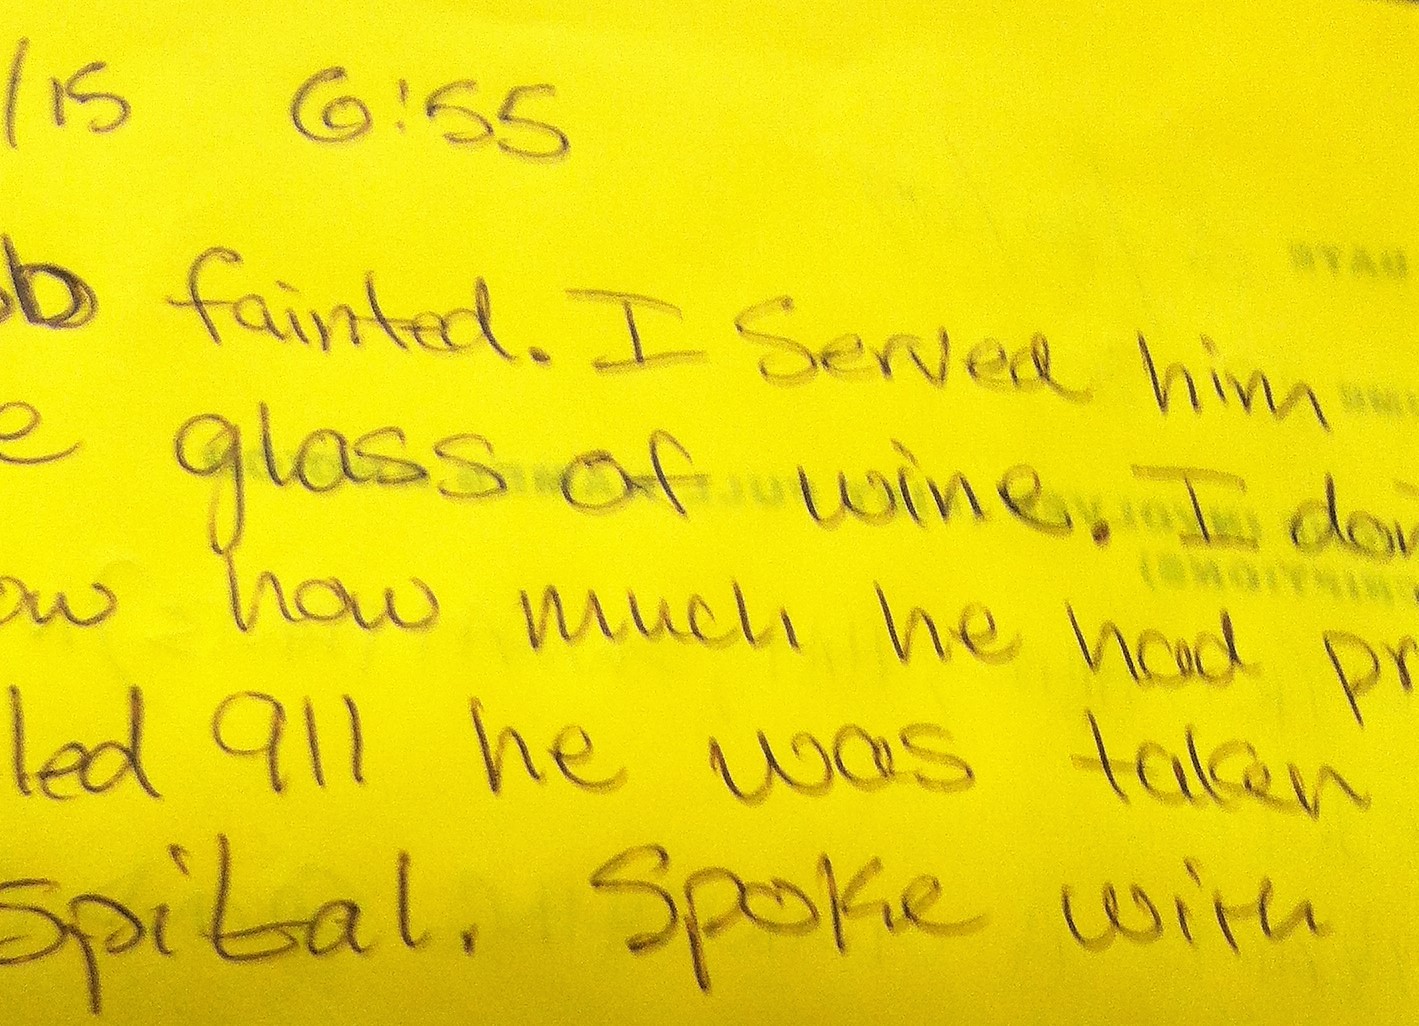 /15 6:55
b fainted. I Served him
e glass of wine. I don
ow how much he had pr
led 911 he was taken
spital. Spoke with